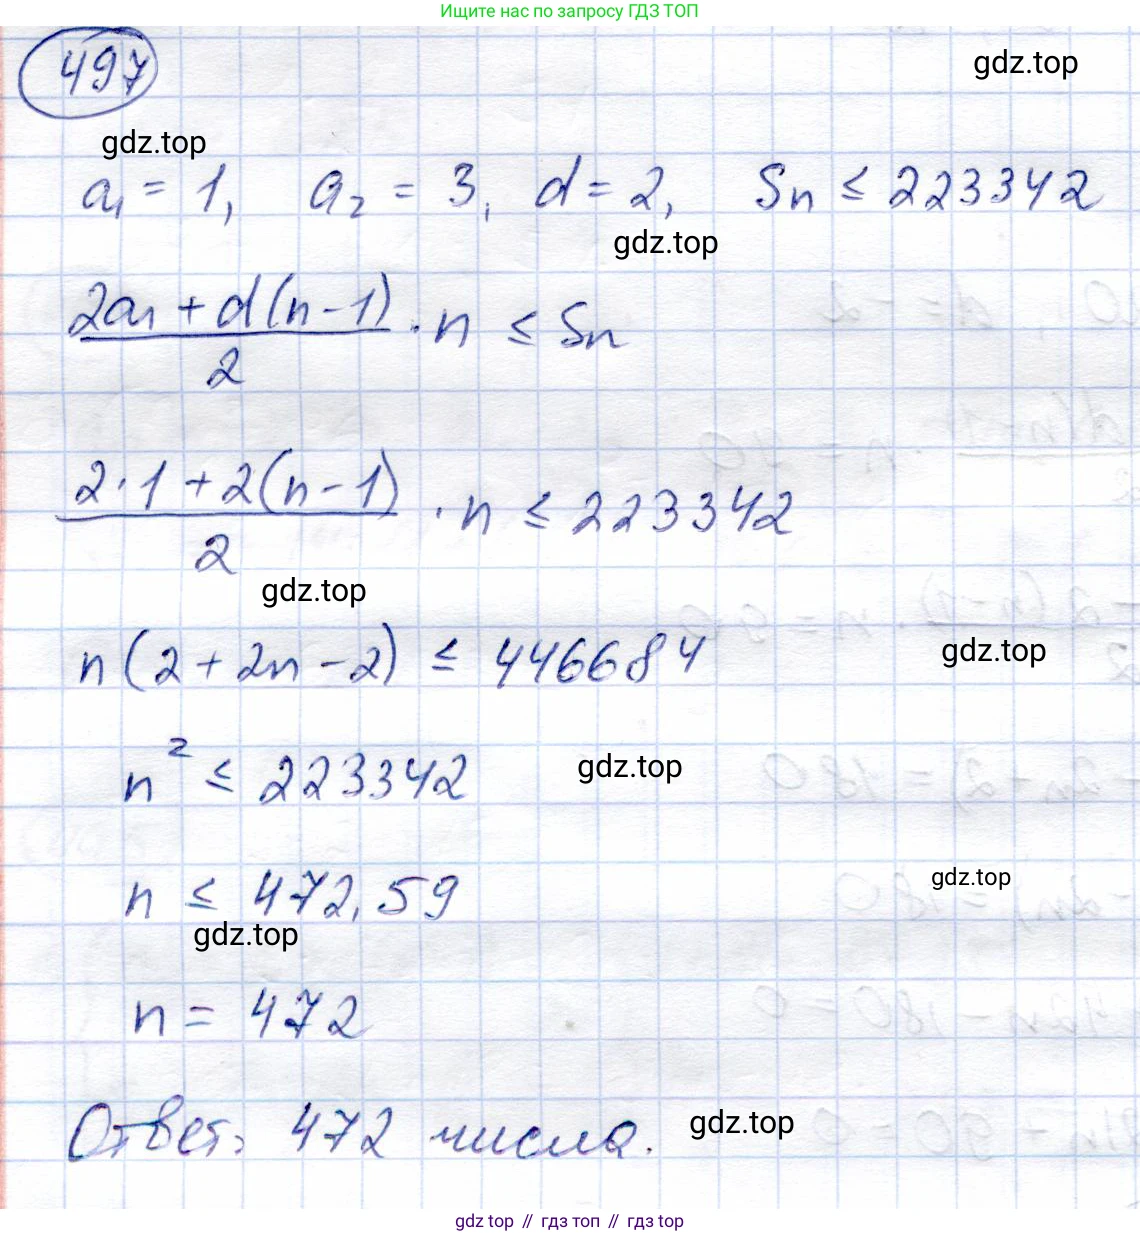 Ищите нас по запросу ГДЗ ТОП
497
gdz.top
gdz.top
a₁ = 1, a₂ = 3, d = 2, Sn ≤ 223342
gdz.top
(2a₁ + d(n-1))/2 · n ≤ Sn
(2·1 + 2(n-1))/2 · n ≤ 223342
gdz.top
n(2 + 2n - 2) ≤ 446684
gdz.top
n² ≤ 223342
gdz.top
n ≤ 472,59
gdz.top
gdz.top
n = 472
Ответ: 472 числа.
gdz.top
gdz top // гдз топ // gdz top